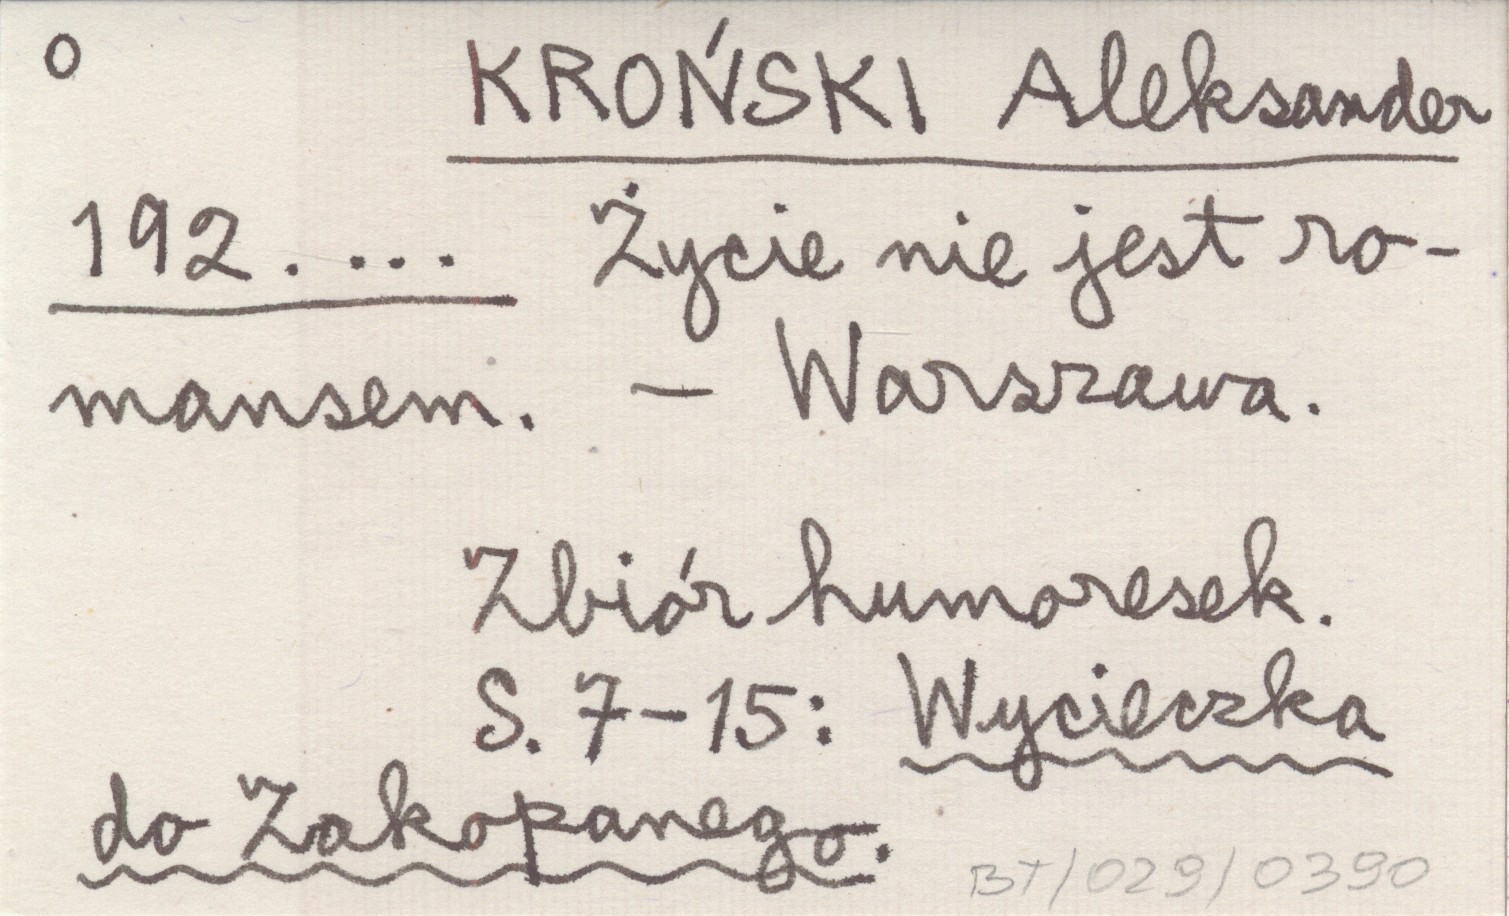 o
KROŃSKI Aleksander
192.... Życie nie jest ro-
mansem. — Warszawa.
Zbiór humoresek.
S. 7-15: Wycieczka
do Zakopanego.
BT/029/0390